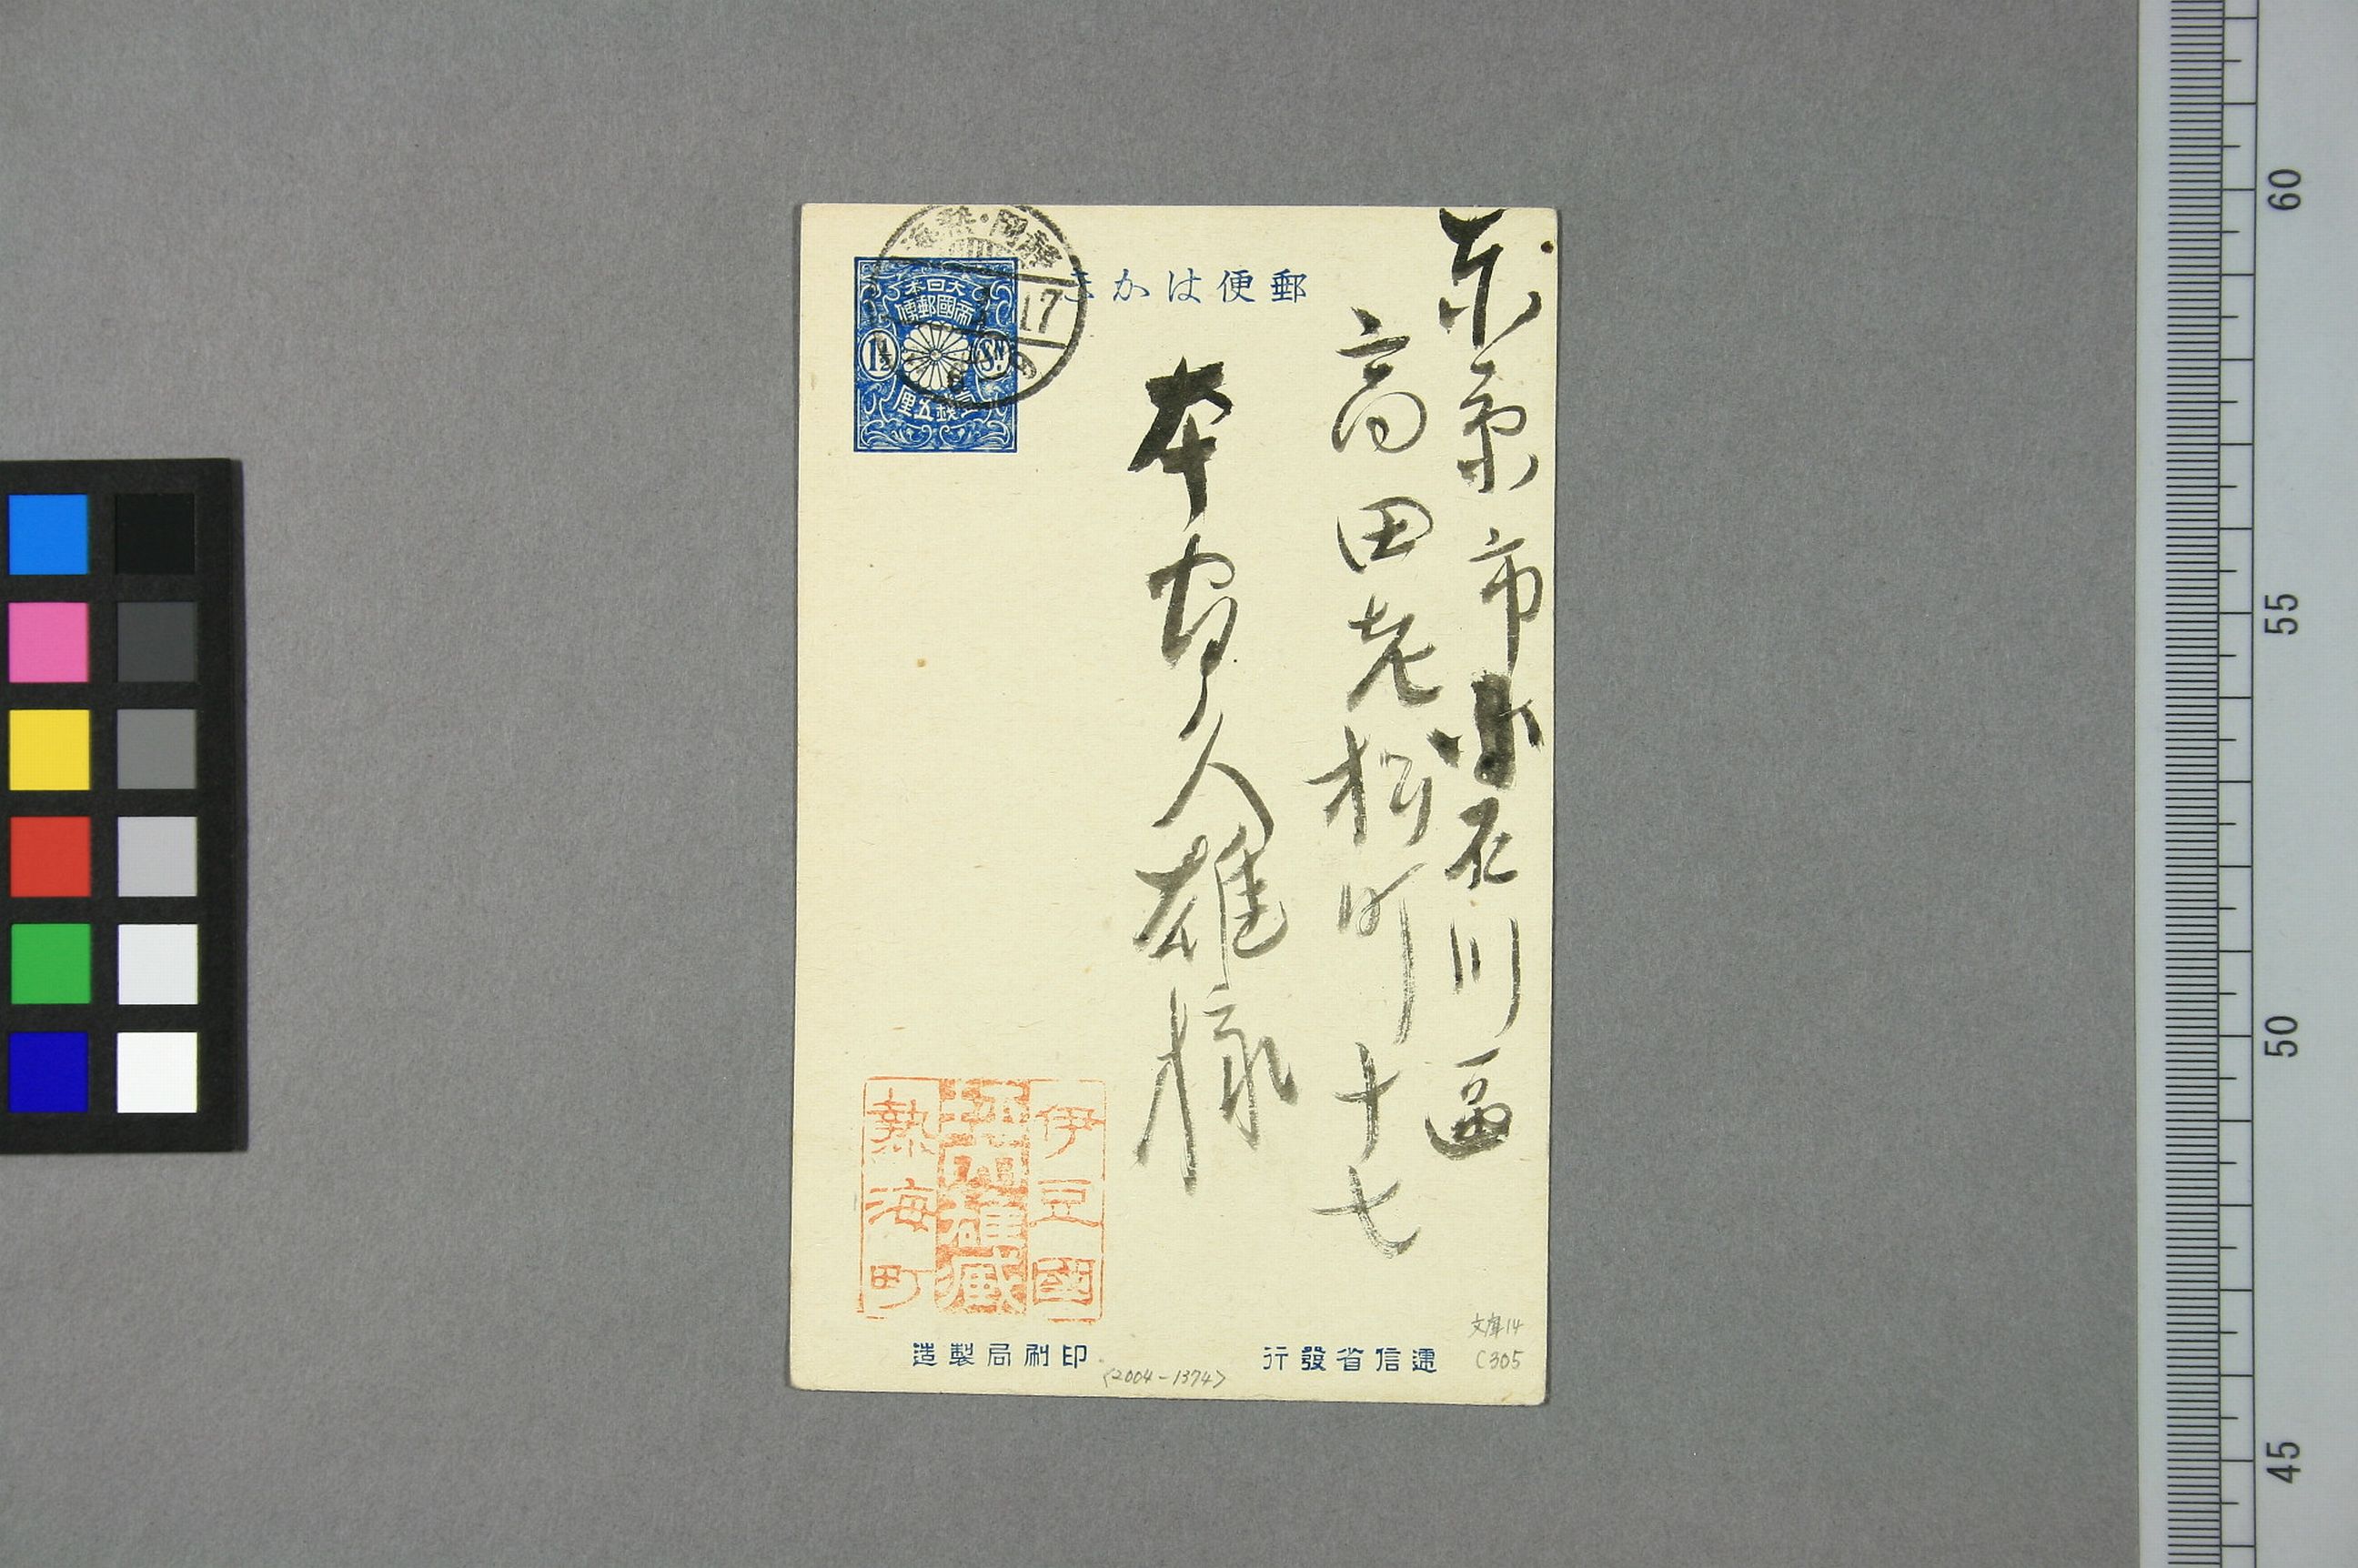 東京市小石川區
高田老松町十七
本間久雄様
郵便はがき
大日本
帝國郵便
1½
Sn.
壹錢五厘
靜岡・熱海
17
伊豆國
坪内雄藏
熱海町
遞信省發行
印刷局製造
文庫14
C305
<2004-1374>
60
55
50
45